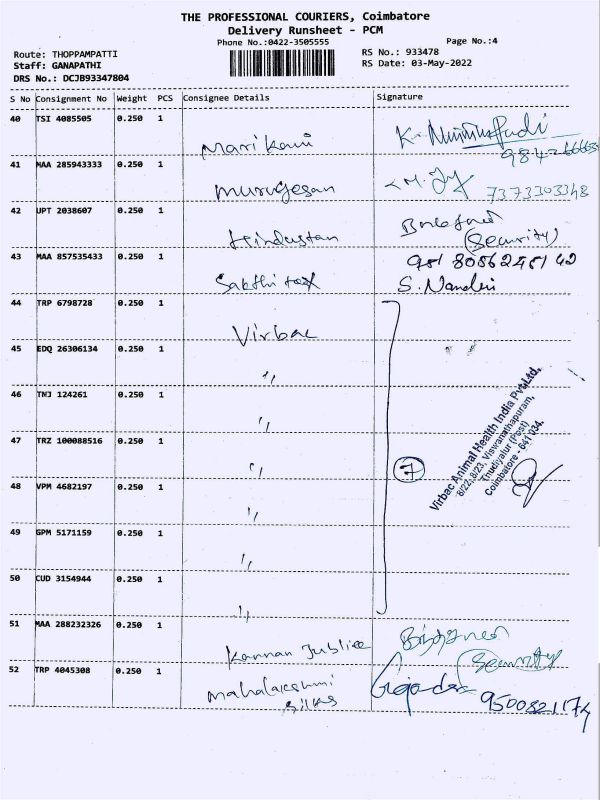 THE PROFESSIONAL COURIERS, Coimbatore
Delivery Runsheet - PCM
Phone No.:0422-3505555
Page No.:4
Route: THOPPAMPATTI
RS No.: 933478
Staff: GANAPATHI
RS Date: 03-May-2022
DRS No.: DCJB93347804
S No Consignment No Weight PCS Consignee Details Signature
40 TSI 4085505 0.250 1
Mari Kani
41 MAA 285943333 0.250 1
Murugesan 7373303348
42 UPT 2038607 0.250 1
Hindustan (Security)
43 MAA 857535433 0.250 1
Sakthi tex S. Nandini
44 TRP 6798728 0.250 1
Virbac
45 EDQ 26306134 0.250 1
"
46 TNJ 124261 0.250 1
"
47 TRZ 100088516 0.250 1
" 7
Virbac Animal Health India Pvt.Ltd,
8/22,8/23, Viswanathapuram,
Thudiyalur (Post)
Coimbatore - 641 034.
48 VPM 4682197 0.250 1
"
49 GPM 5171159 0.250 1
"
50 CUD 3154944 0.250 1
"
51 MAA 288232326 0.250 1
Kannan Jubliee Security
52 TRP 4045308 0.250 1
Mahalakshmi 9500321174
silks